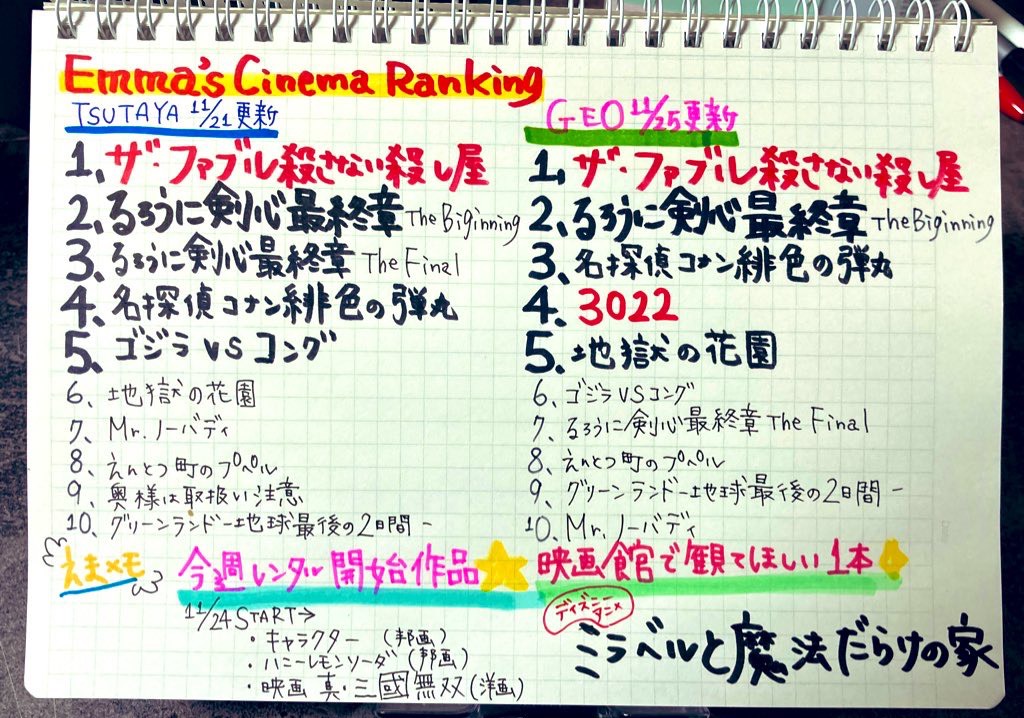 Emma's Cinema Ranking
TSUTAYA 11/21更新
1. ザ・ファブル殺さない殺し屋
2. るろうに剣心最終章 The Biginning
3. るろうに剣心最終章 The Final
4. 名探偵コナン緋色の弾丸
5. ゴジラ VS コング
6、地獄の花園
7、Mr.ノーバディ
8、えんとつ町のプペル
9、奥様は取扱い注意
10、グリーンランドー地球最後の2日間ー
GEO 11/25更新
1. ザ・ファブル殺さない殺し屋
2. るろうに剣心最終章 The Biginning
3. 名探偵コナン緋色の弾丸
4. 3022
5. 地獄の花園
6、ゴジラVSコング
7、るろうに剣心最終章 The Final
8、えんとつ町のプペル
9、グリーンランドー地球最後の2日間ー
10、Mr.ノーバディ
えまメモ
今週レンタル開始作品
11/24 START→
・キャラクター (邦画)
・ハニーレモンソーダ (邦画)
・映画 真・三國無双 (洋画)
映画館で観てほしい1本
ディズニーアニメ
ミラベルと魔法だらけの家